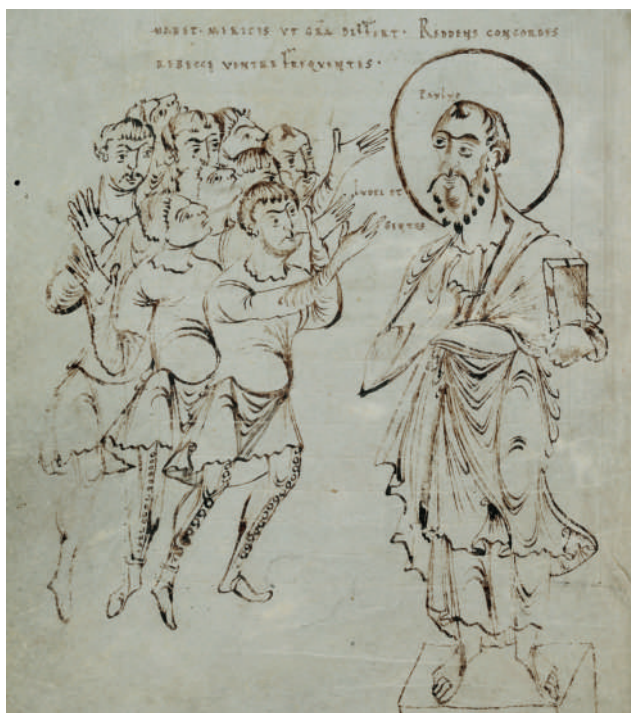 HABET · MERICIS VT GRA DEFFERT · REDDENS CONCORDES
REBECCE VENTRE FREQVENTES ·
PAVLVS
IVDEI ET
GENTES